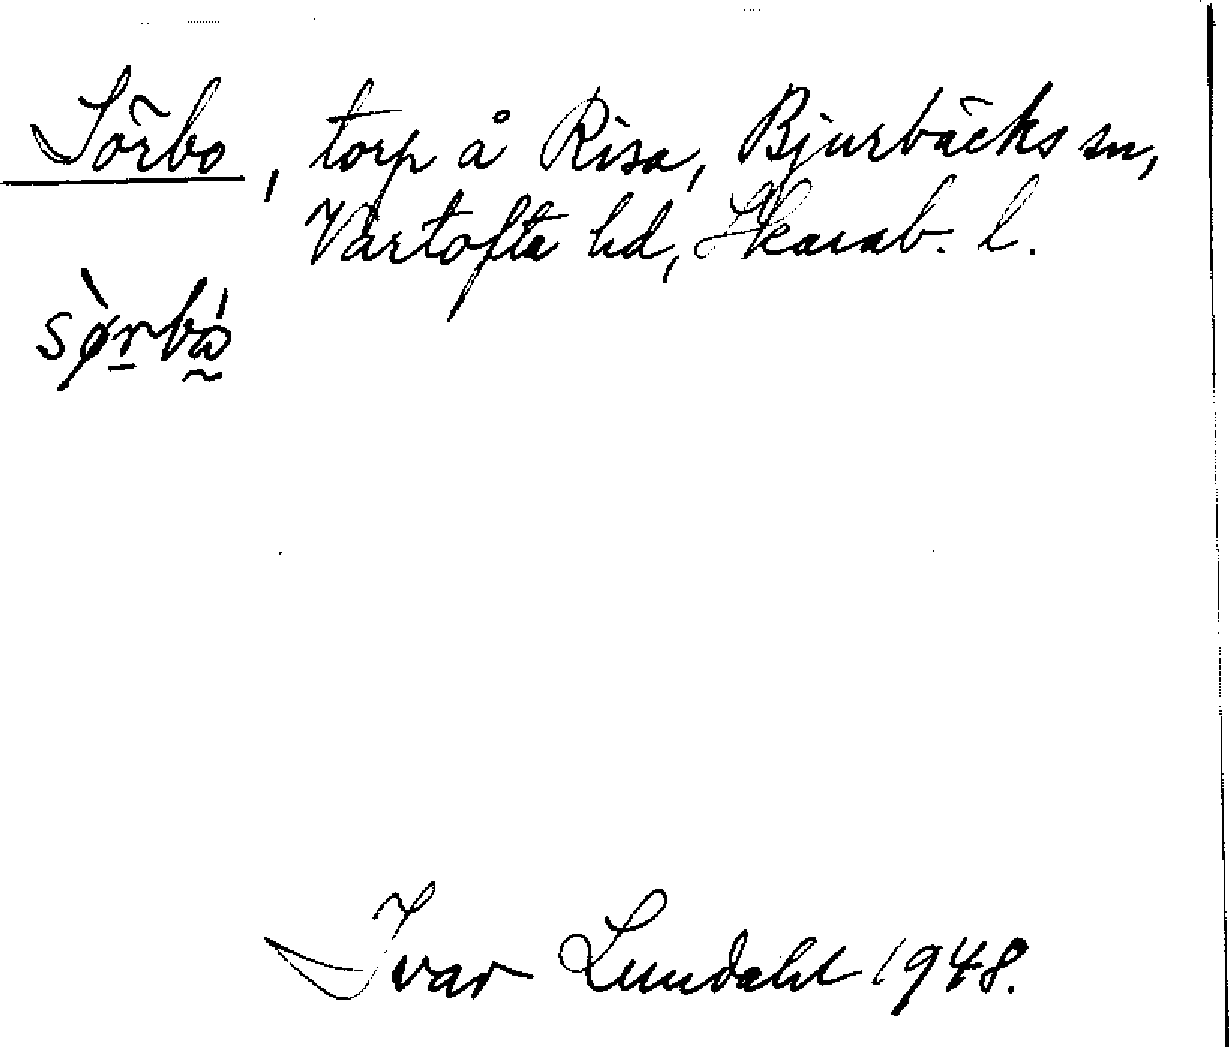 Sörbo, torp å Risa, Bjurbäcks sn,
Vartofta hd, Skarab. l.
sø̀rbó
Ivar Lundahl 1948.